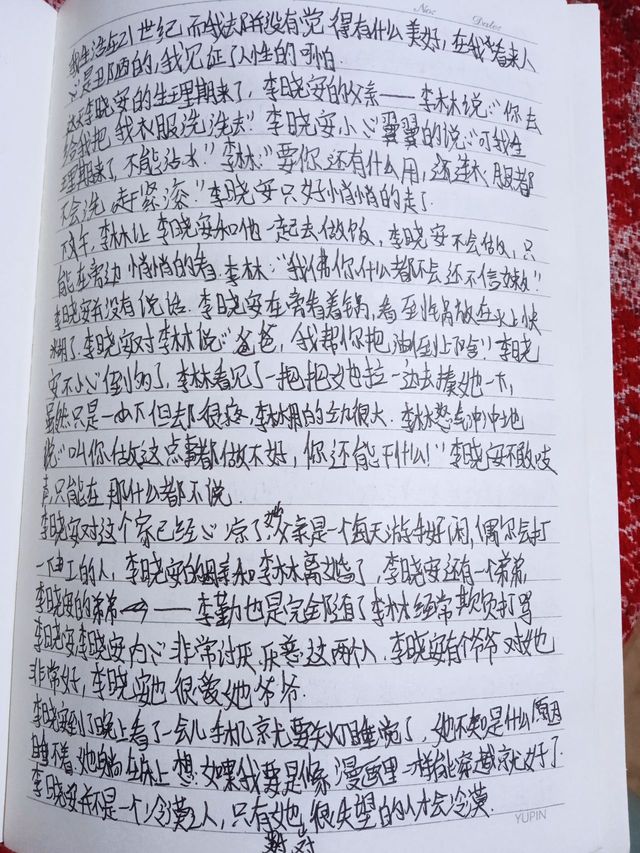 No:
Date:
我生活在21世纪而我却并没有觉得有什么美好,在我看来人
心是丑陋的,我见证了人性的可怕.
这天李晓安的生理期来了,李晓安的父亲——李林说:"你去
给我把我衣服洗洗去"李晓安小心翼翼的说:"可我生
理期来了,不能沾水"李林:"要你还有什么用,连连衣服都
不会洗,赶紧滚"李晓安只好悄悄的走了.
下午,李林让李晓安和他一起去做饭,李晓安不会做,只
能在旁边悄悄的看.李林:"我佛你什么都不会还不信教"
李晓安并没有说话.李晓安在旁看着锅,看到锅放在火上快
糊了.李晓安对李林说:"爸爸,我帮你把油倒上哈"李晓
安不小心倒多了,李林看见了一把把她拉一边去揍她一下,
虽然只是一下但却很疼,李林用的力很大.李林怒气冲冲地
说:"叫你做这点事都做不好,你还能干什么!"李晓安不敢吱
声,只能在那什么都不说.
李晓安对这个家已经心凉了,她父亲是一个每天游手好闲,偶尔会打
一下电工的人,李晓安的母亲和李林离婚了,李晓安还有一个弟弟,
李晓安的弟弟——李勤也是完全随了李林经常欺负打骂
李晓安李晓安内心非常讨厌.厌恶这两个人.李晓安有个爷爷对她
非常好,李晓安也很爱她爷爷.
李晓安到了晚上看了一会儿手机就要关灯睡觉了,她不知是什么原因
睡不着.她躺在床上想:如果我要是像漫画里一样能穿越就好了.
李晓安并不是一个冷漠之人,只有她很失望的人才会冷漠.
对
YUPIN